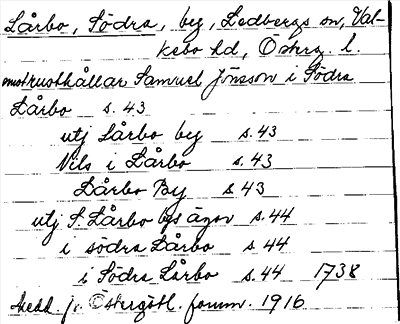 Lårbo, Södra, by, Ledbergs sn, Val-
kebo hd, Östrg. l.
Samuel Jönsson i Södra
Lårbo s. 43
utj Lårbo by s. 43
Nils i Lårbo s. 43
Lårbo By s 43
utj S. Lårbo bys ägor s. 44
i södra Lårbo s. 44
i Södra Lårbo s. 44 1738
Medd. fr. Östergötl. fornm. 1916